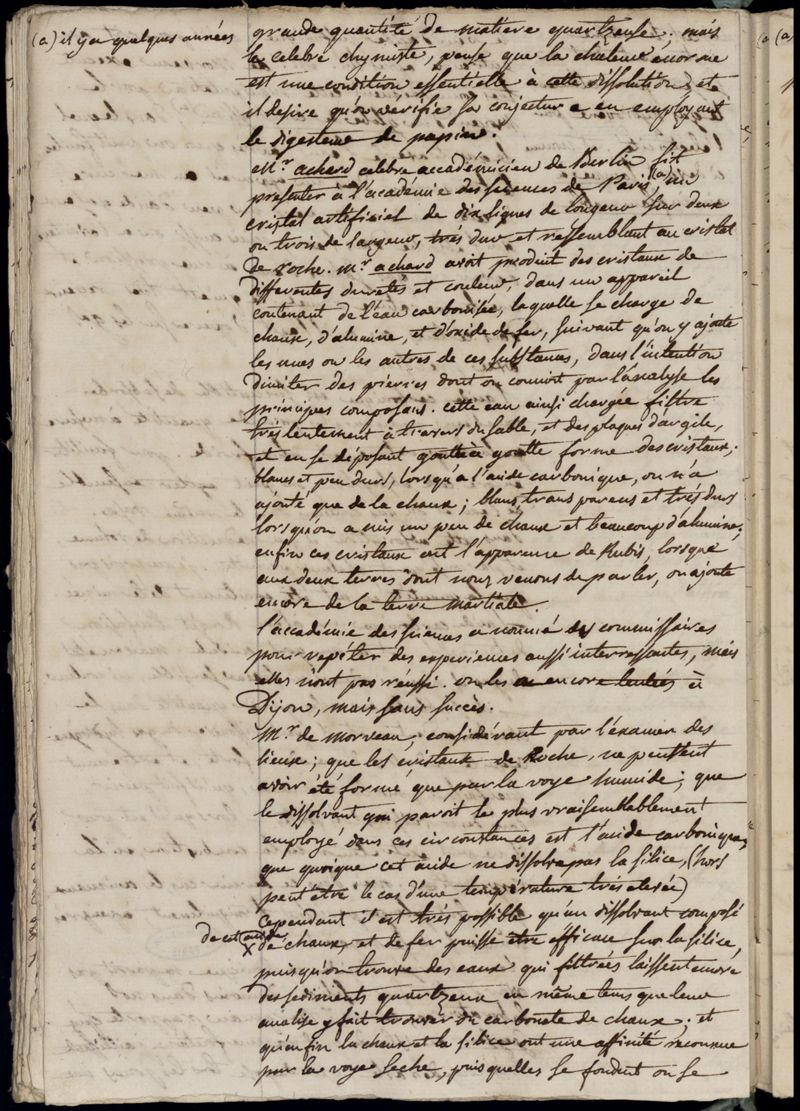 (a) il y a quelques années
grande quantité de matiere quartzeuse ; mais
le celebre chymiste, pense que la chaleur enorme
est une condition essentielle à cette dissolution, et
il desire qu'on vérifie sa conjecture en employant
le digesteur de papin.
Mr. achard celebre académicien de Berlin fit
presenter à l'académie des sciences de Paris (a) un
cristal artificiel de dix lignes de longeur sur deux
ou trois de largeur, trés dur et ressemblant au cristal
de roche. Mr. achard avoit produit des cristaux de
differentes duretés et couleur, dans un appareil
contenant de l'eau carbonisée, laquelle se charge de
chaux, d'alumine, et d'oxide de fer, suivant qu'on y ajoute
les unes ou les autres de ces substances, dans l'intention
d'imiter des pierres dont on connoit par l'analyse les
principes composans. cette eau ainsi chargée filtre
trés lentement à travers du sable, et des plaques d'argile,
et en se déposant goutte à goutte forme des cristaux ;
blancs et peu durs, lorsqu'a l'acide carbonique, on n'a
ajouté que de la chaux ; blancs transparens et trés durs
lorsqu'on a mis un peu de chaux et beaucoup d'alumine ;
enfin ces cristaux ont l'apparence de Rubis, lorsque
aux deux terres dont nous venons de parler, on ajoute
encore de la terre martiale.
l'académie des sciences a nommé des commissaires
pour repéter des experiences aussi interressantes, mais
elles n'ont pas réussi. on les a encore tentées à
Dijon, mais sans succès.
Mr. de morveau, considérant par l'éxamen des
lieux ; que les cristaux de Roche, ne peuvent
avoir été formé que par la voye humide ; que
le dissolvant qui paroit le plus vraisemblablement
employé dans ces circonstances est l'acide carbonique,
que quoique cet acide ne dissolve pas la silice, (hors
peut être le cas d'une température trés elevée)
cependant il est trés possible qu'un dissolvant composé
de cet acide
X de chaux, et de fer puisse etre efficace sur la silice,
puisqu'on trouve des eaux qui filtrées laissent encore
des sediments quartzeux, en même tems que leur
analise y fait trouver du carbonate de chaux ; et
qu'enfin la chaux et la silice ont une affinité reconnue
par la voye seche, puis quelles se fondent ou se